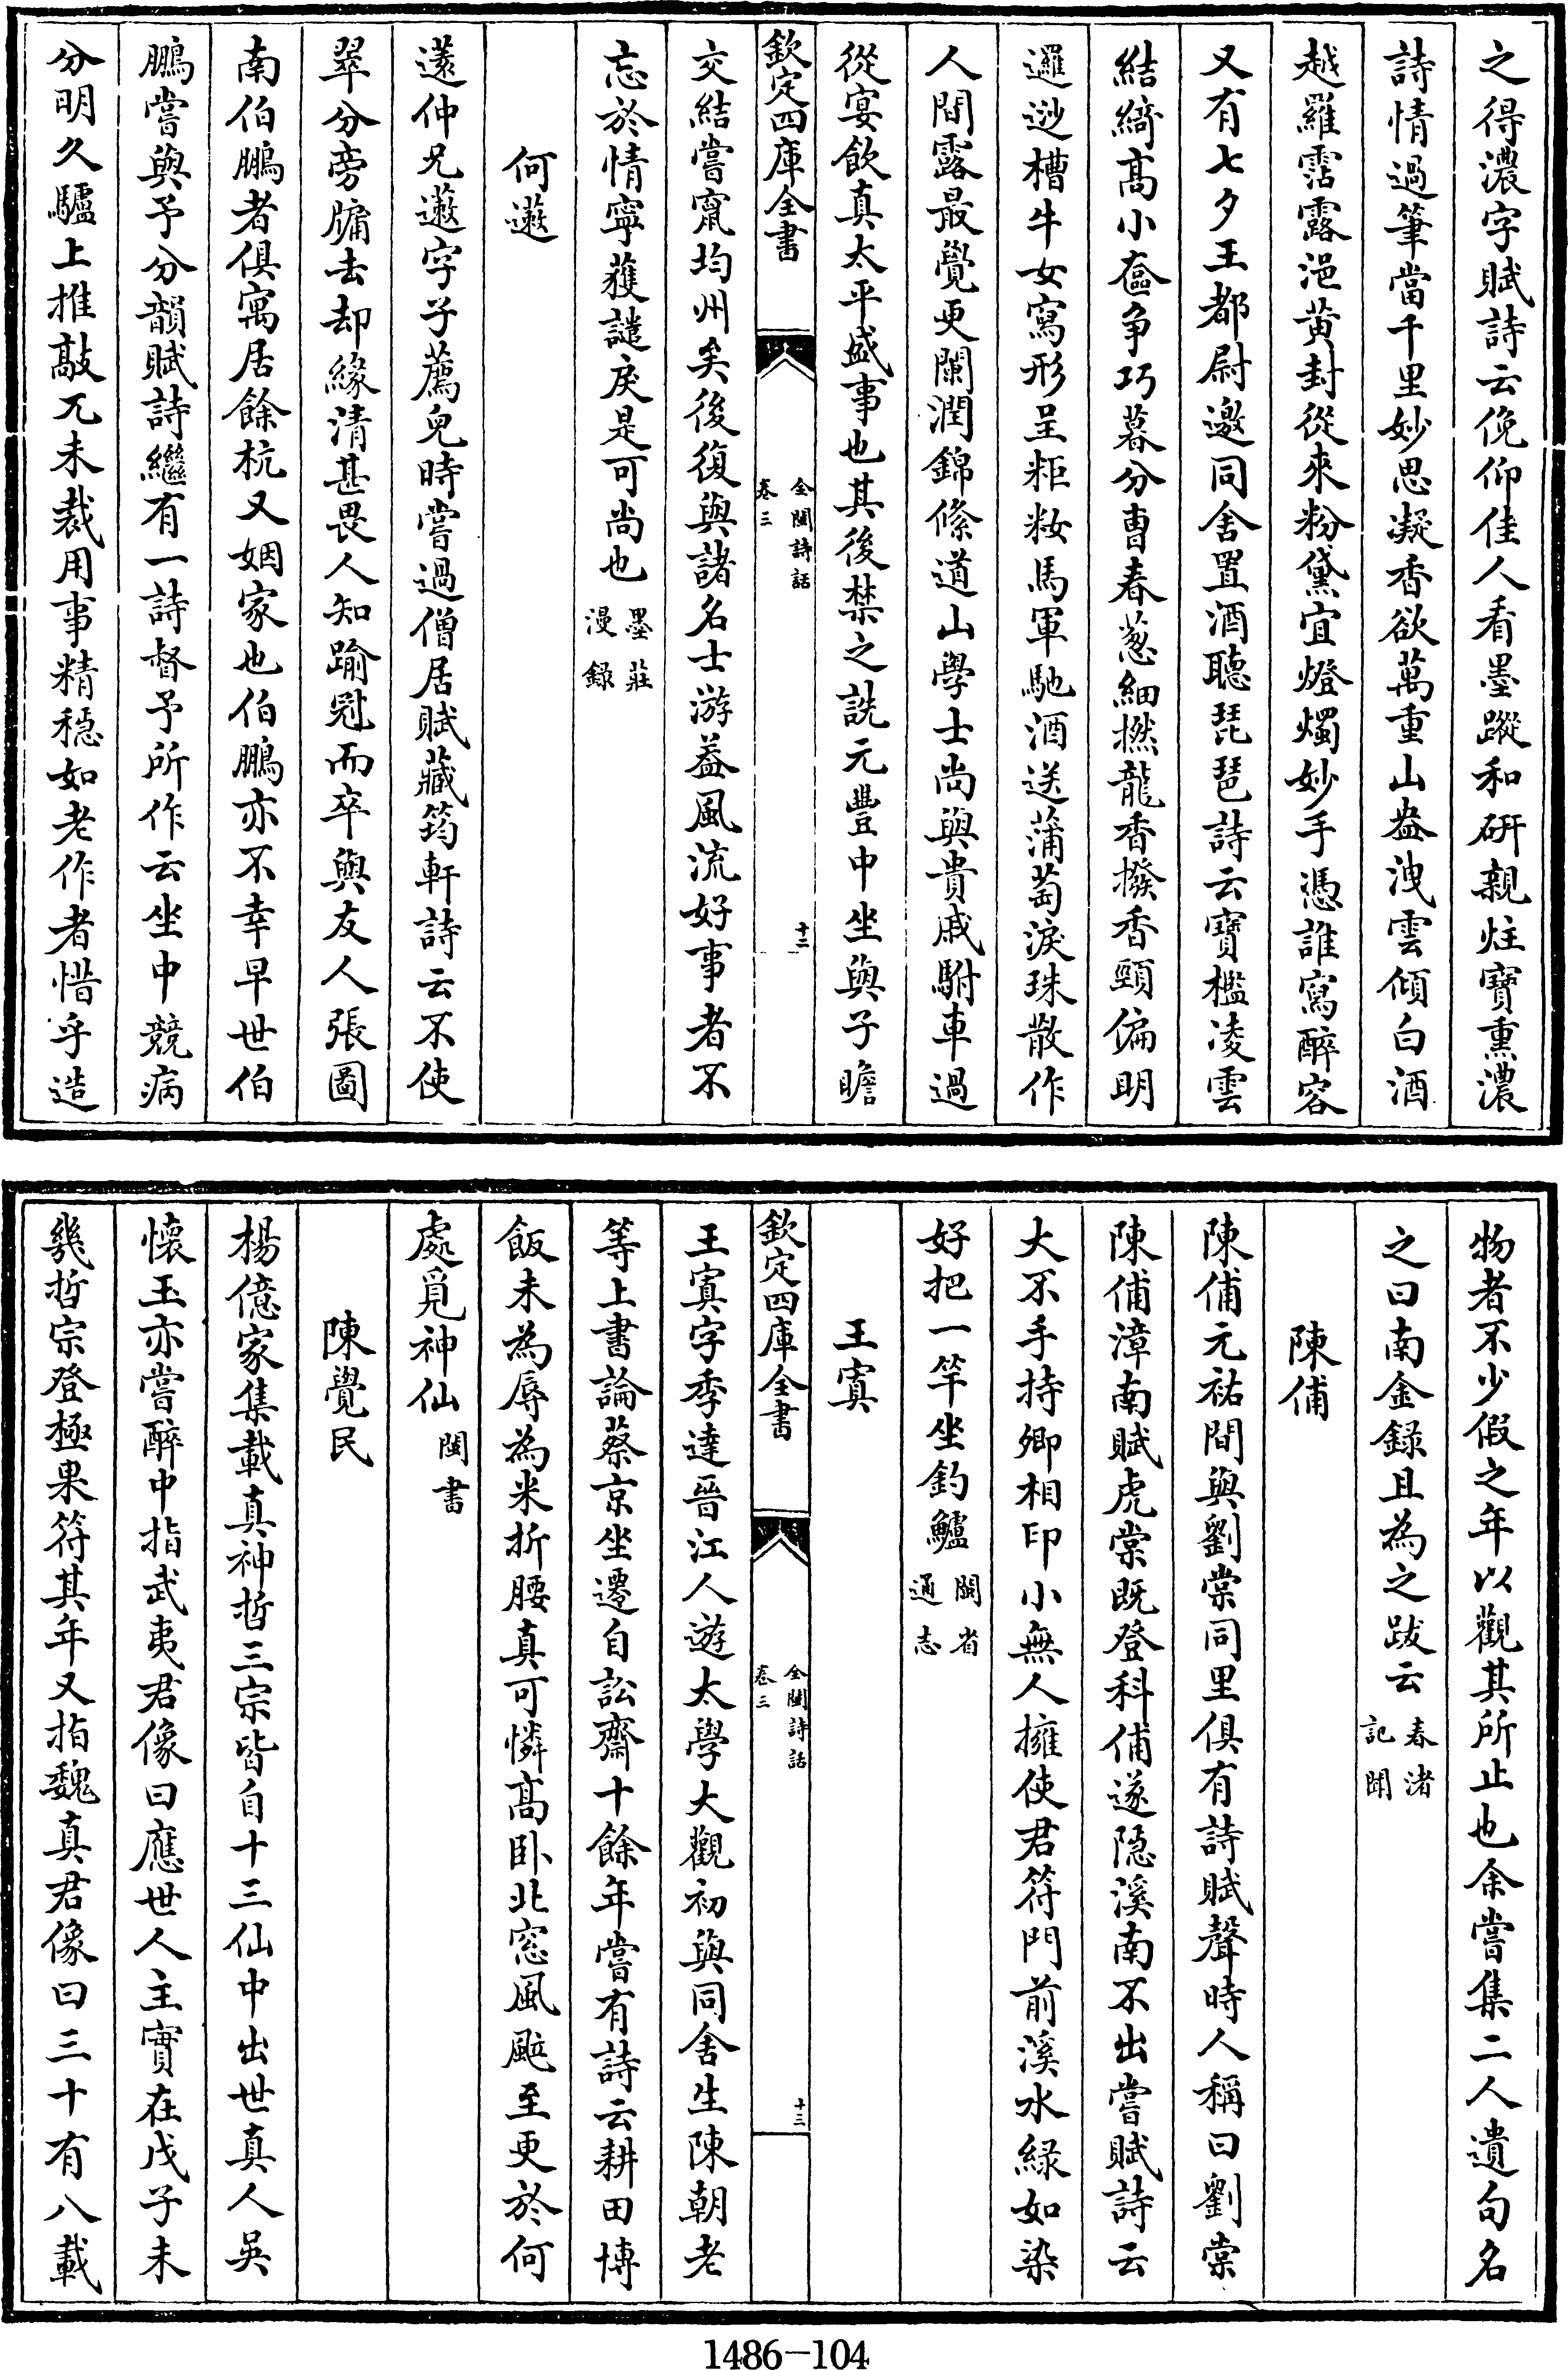 之得濃字賦詩云俛仰佳人看墨蹤和硏親炷寶熏濃
詩情過筆當千里妙思凝香欲萬重山盎洩雲傾白酒
越羅霑露浥黄封從來粉黛宜燈燭妙手憑誰寫醉容
又有七夕王都尉邀同舍置酒聽琵琶詩云寶檻凌雲
結綺高小奩争巧暮分曹春葱細撚龍香撥香頸偏明
邏逤槽牛女寫形呈粔籹馬軍馳酒送蒲萄淚珠散作
人間露最覺更闌潤錦絛道山學士尚與貴戚駙車過
從宴飲真太平盛事也其後禁之詵元豐中坐與子瞻
欽定四庫全書
全閩詩話
卷三
十二
交結嘗竄均州矣後復與諸名士游益風流好事者不
忘於情寧獲譴戾是可尚也 墨莊
漫録
何薳
薳仲兄薳字子薦兒時嘗過僧居賦藏筠軒詩云不使
翠分旁牖去却緣清甚畏人知踰冠而卒與友人張圖
南伯鵬者俱寓居餘杭又姻家也伯鵬亦不幸早世伯
鵬嘗與予分韻賦詩繼有一詩督予所作云坐中競病
分明久驢上推敲兀未裁用事精穩如老作者惜乎造
物者不少假之年以觀其所止也余嘗集二人遺句名
之曰南金録且為之跋云 春渚
記聞
陳俌
陳俌元祐間與劉棠同里俱有詩賦聲時人稱曰劉棠
陳俌漳南賦虎棠既登科俌遂隱溪南不出嘗賦詩云
大不手持卿相印小無人擁使君符門前溪水緑如染
好把一竿坐釣鱸 閩省
通志
王寘
欽定四庫全書
全閩詩話
卷三
十三
王寘字季達晉江人遊太學大觀初與同舍生陳朝老
等上書論蔡京坐遷自訟齋十餘年嘗有詩云耕田博
飯未為辱為米折腰真可憐高卧北窓風颭至更於何
處覓神仙 閩書
陳覺民
楊億家集載真神哲三宗皆自十三仙中出世真人吳
懷玉亦嘗醉中指武夷君像曰應世人主實在戊子未
幾哲宗登極果符其年又指魏真君像曰三十有八載
1486-104